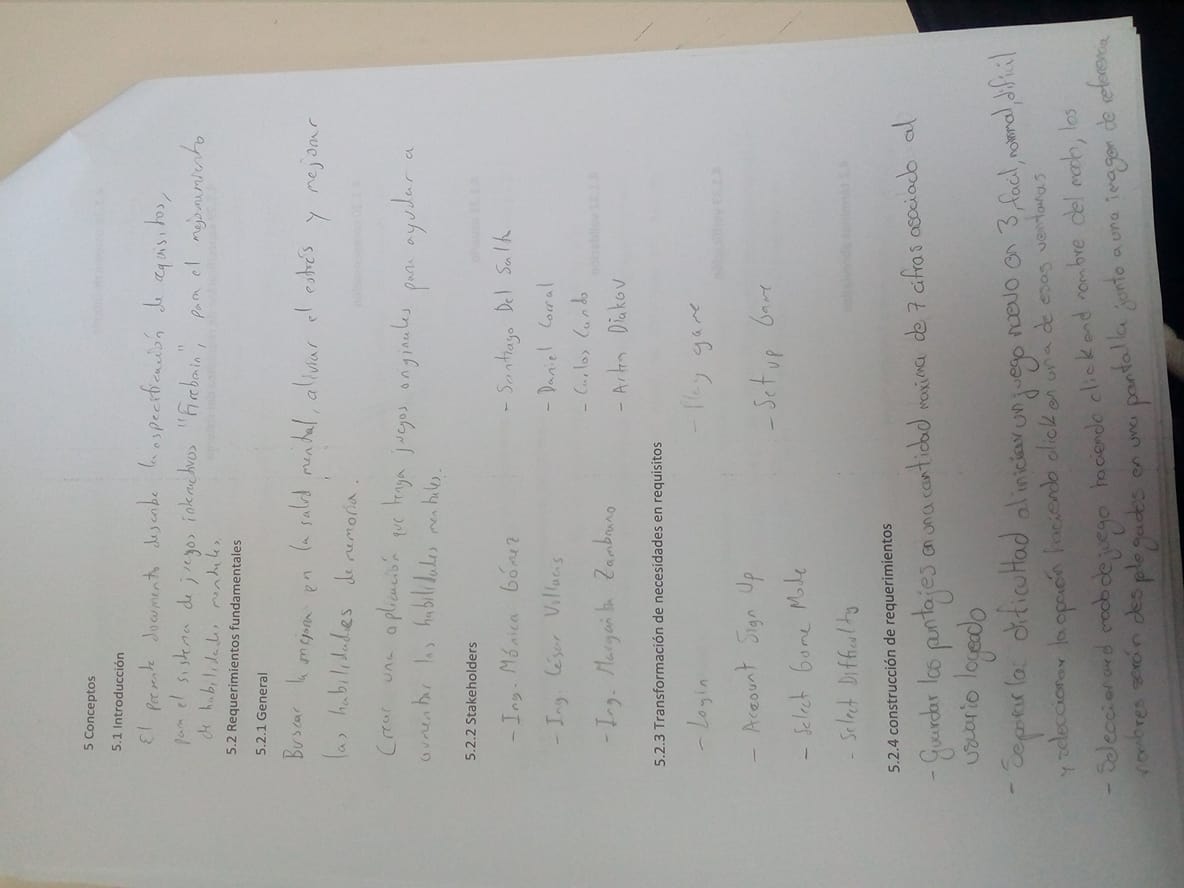 5 Conceptos
5.1 Introducción
El presente documento describe la especificación de requisitos,
para el sistema de juegos interactivos "Firebain", para el mejoramiento
de habilidades mentales.
5.2 Requerimientos fundamentales
5.2.1 General
Buscar la mejora en la salud mental, aliviar el estrés y mejorar
las habilidades de memoria.
Crear una aplicación que tenga juegos originales para ayudar a
aumentar las habilidades mentales.
5.2.2 Stakeholders
- Ing. Mónica Gómez
- Santiago Del Salto
- Ing. César Villacis
- Daniel Corral
- Carlos Cando
- Ing. Margarita Zambrano
- Artin Diakov
5.2.3 Transformación de necesidades en requisitos
- Login
- Play game
- Account Sign Up
- Set up Game
- Select Game Mode
- Select Difficulty
5.2.4 construcción de requerimientos
- Guardar los puntajes en una cantidad maxima de 7 cifras asociado al
usuario logeado
- Separar la dificultad al iniciar un juego nuevo en 3, facil, normal, dificil
y seleccionar la opción haciendo click en una de esas ventanas
- Seleccionar el modo de juego haciendo click en el nombre del modo, los
nombres serán desplegados en una pantalla junto a una imagen de referencia